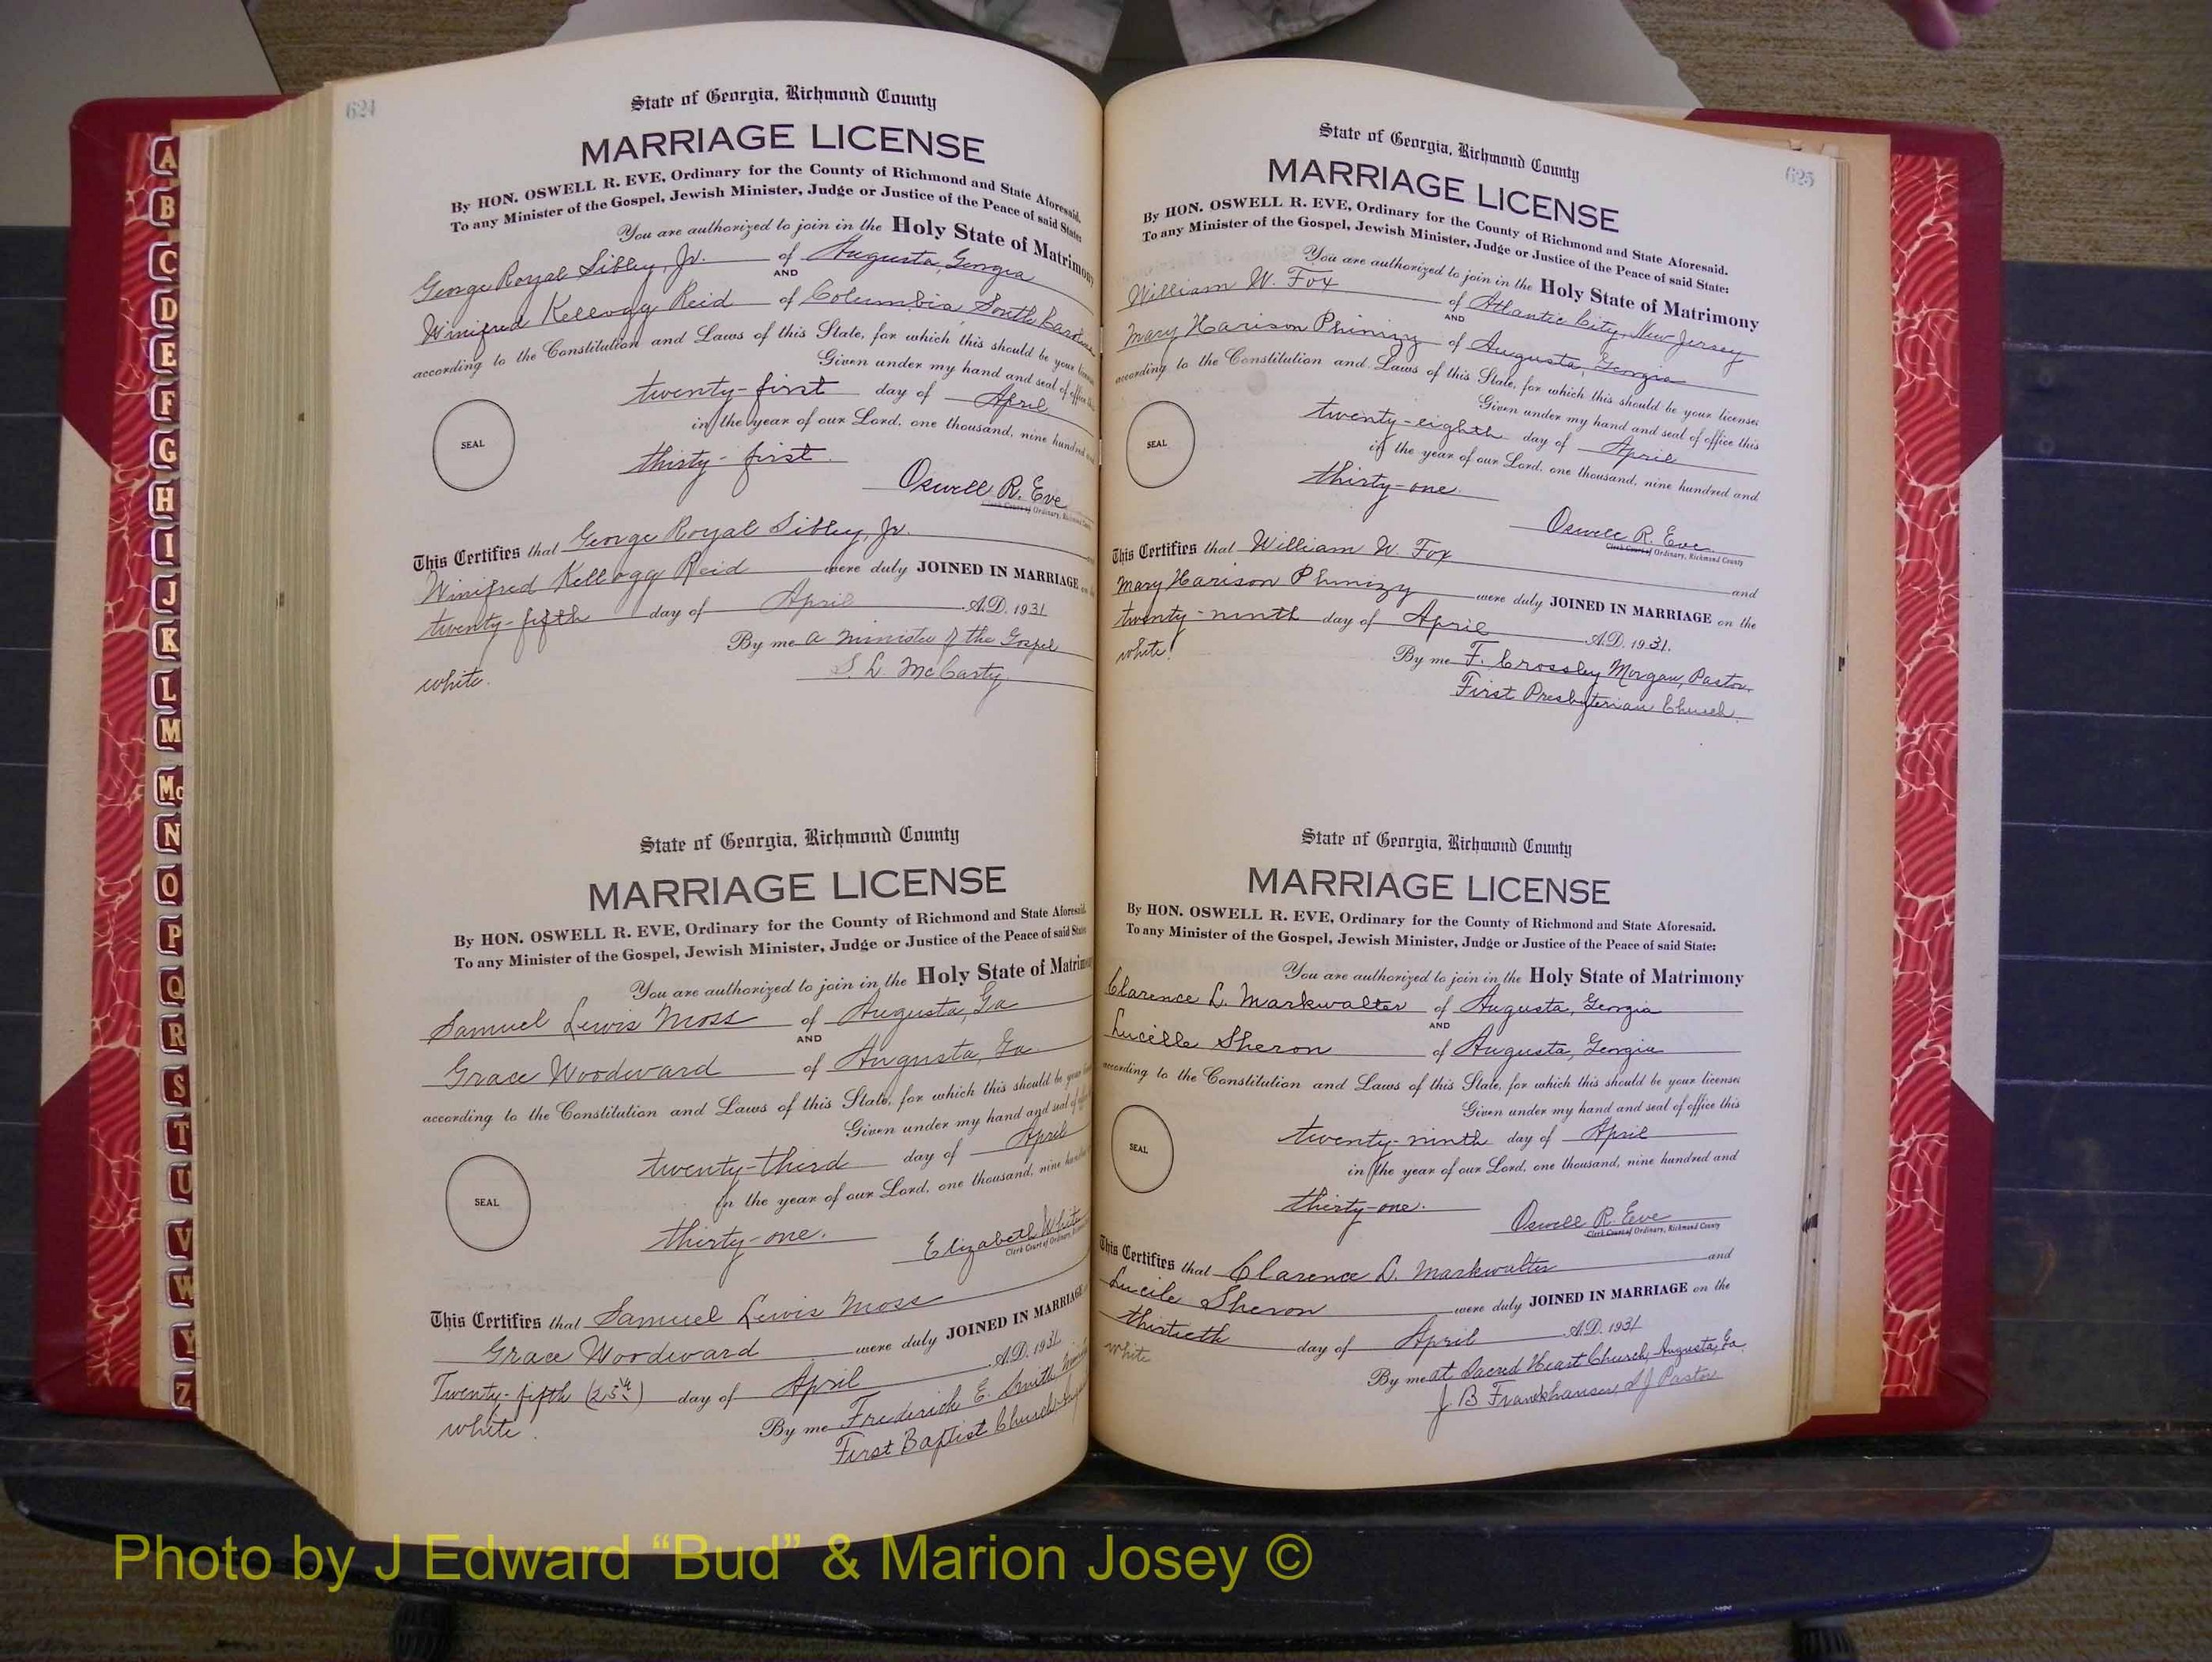 A
B
C
D
E
F
G
H
I
J
K
L
M
Mc
N
O
P
Q
R
S
T
U
V
W
Y
Z
624
State of Georgia, Richmond County
MARRIAGE LICENSE
By HON. OSWELL R. EVE, Ordinary for the County of Richmond and State Aforesaid.
To any Minister of the Gospel, Jewish Minister, Judge or Justice of the Peace of said State:
You are authorized to join in the Holy State of Matrimony
George Royal Sibley, Jr. of Augusta, Georgia
AND
Winifred Kellogg Reid of Columbia South Carolina
according to the Constitution and Laws of this State, for which this should be your license
Given under my hand and seal of office
twenty-first day of April
in the year of our Lord, one thousand, nine hundred
thirty-first
SEAL
Oswell R. Eve
Clerk Court of Ordinary, Richmond County
This Certifies that George Royal Sibley, Jr.
Winifred Kellogg Reid were duly JOINED IN MARRIAGE on
twenty-fifth day of April A.D. 1931
By me a minister of the Gospel
S. L. McCarty
white.
State of Georgia, Richmond County
MARRIAGE LICENSE
By HON. OSWELL R. EVE, Ordinary for the County of Richmond and State Aforesaid.
To any Minister of the Gospel, Jewish Minister, Judge or Justice of the Peace of said State
You are authorized to join in the Holy State of Matrimony
Samuel Lewis Moss of Augusta, Ga
AND
Grace Woodward of Augusta, Ga.
according to the Constitution and Laws of this State, for which this should be your
Given under my hand and seal of
twenty-third day of April
in the year of our Lord, one thousand, nine hundred
thirty-one.
SEAL
Elizabeth White
Clerk Court of Ordinary,
This Certifies that Samuel Lewis Moss
Grace Woodward were duly JOINED IN MARRIAGE
Twenty-fifth (25th) day of April A.D. 1931
By me Frederick E. Smith
First Baptist Church
white.
625
State of Georgia, Richmond County
MARRIAGE LICENSE
By HON. OSWELL R. EVE, Ordinary for the County of Richmond and State Aforesaid.
To any Minister of the Gospel, Jewish Minister, Judge or Justice of the Peace of said State:
You are authorized to join in the Holy State of Matrimony
William W. Fox of Atlantic City, New Jersey
AND
Mary Harison Phinizy of Augusta, Georgia
according to the Constitution and Laws of this State, for which this should be your license
Given under my hand and seal of office this
twenty-eighth day of April
in the year of our Lord, one thousand, nine hundred and
thirty-one.
SEAL
Oswell R. Eve
Clerk Court of Ordinary, Richmond County
This Certifies that William W. Fox and
Mary Harison Phinizy were duly JOINED IN MARRIAGE on the
twenty-ninth day of April A.D. 1931.
By me F. Crossley Morgan, Pastor,
First Presbyterian Church.
white.
State of Georgia, Richmond County
MARRIAGE LICENSE
By HON. OSWELL R. EVE, Ordinary for the County of Richmond and State Aforesaid.
To any Minister of the Gospel, Jewish Minister, Judge or Justice of the Peace of said State:
You are authorized to join in the Holy State of Matrimony
Clarence L. Markwalter of Augusta, Georgia
AND
Lucille Sheron of Augusta, Georgia
according to the Constitution and Laws of this State, for which this should be your license
Given under my hand and seal of office this
twenty-ninth day of April
in the year of our Lord, one thousand, nine hundred and
thirty-one.
SEAL
Oswell R. Eve
Clerk Court of Ordinary, Richmond County
This Certifies that Clarence L. Markwalter and
Lucile Sheron were duly JOINED IN MARRIAGE on the
thirtieth day of April A.D. 1931
By me at Sacred Heart Church, Augusta, Ga.
J B Frankhauser, SJ Pastor
white
Photo by J Edward “Bud” & Marion Josey ©